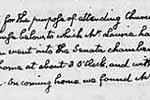 for the purpose of attending Church
below, to which Mr.
went into the Senate Chamber
home at about 3 O'Clock, and with
On coming home we found Mr